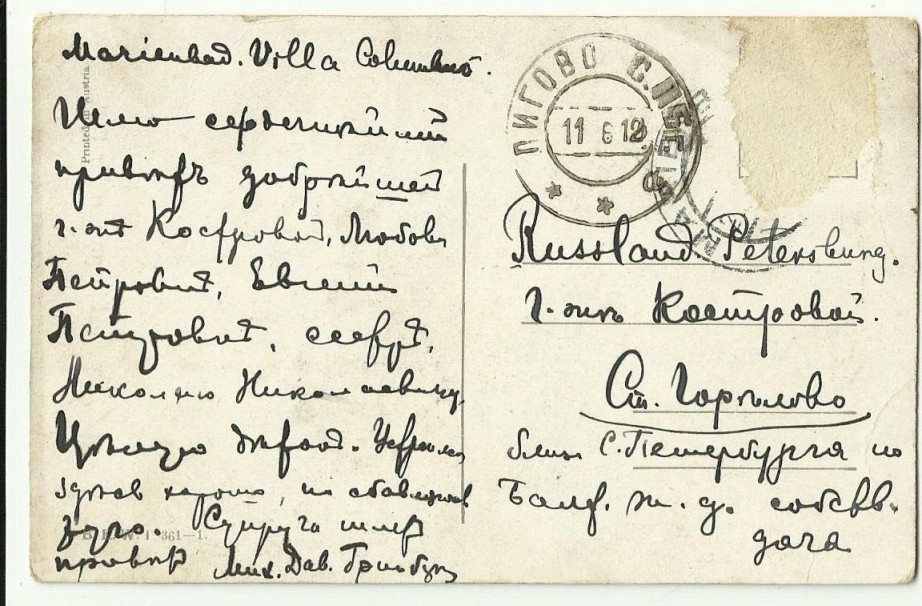 Marienbad. Villa Columbus.
Шлю сердечнѣйшій
привѣтъ добрѣйшей
г-жѣ Костровой, Любови
Петровнѣ, Евгеніи
Петровнѣ, сестрѣ,
Николаю Николаевичу.
Цѣлую дѣтей. Устроились
здѣсь хорошо, но
Супруга шлетъ
привѣтъ Мих. Дав.
Printed in Austria.
361—1.
ЛИГОВО С.ПБ
11 6 12
Russland Petersburg.
Г-жѣ Костровой.
Ст. Горѣлово
близъ С. Петербурга по
Балт. ж. д. собств.
дача